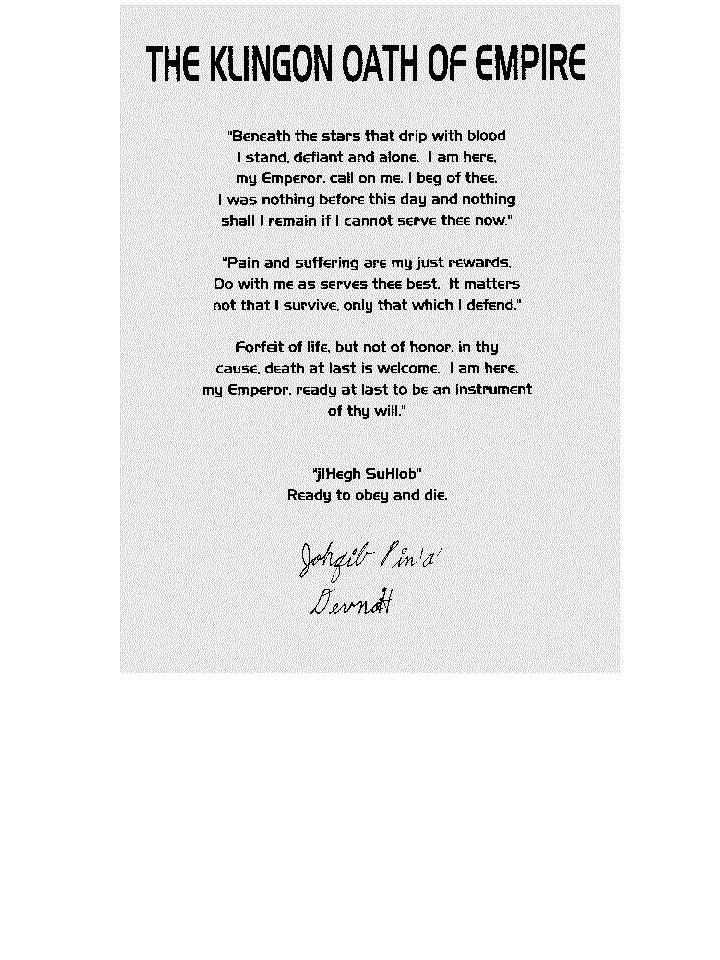 THE KLINGON OATH OF EMPIRE
"Beneath the stars that drip with blood
I stand, defiant and alone. I am here,
my Emperor, call on me, I beg of thee.
I was nothing before this day and nothing
shall I remain if I cannot serve thee now."
"Pain and suffering are my just rewards.
Do with me as serves thee best. It matters
not that I survive, only that which I defend."
Forfeit of life, but not of honor, in thy
cause, death at last is welcome. I am here,
my Emperor, ready at last to be an instrument
of thy will."
"jIHegh SuHlob"
Ready to obey and die.